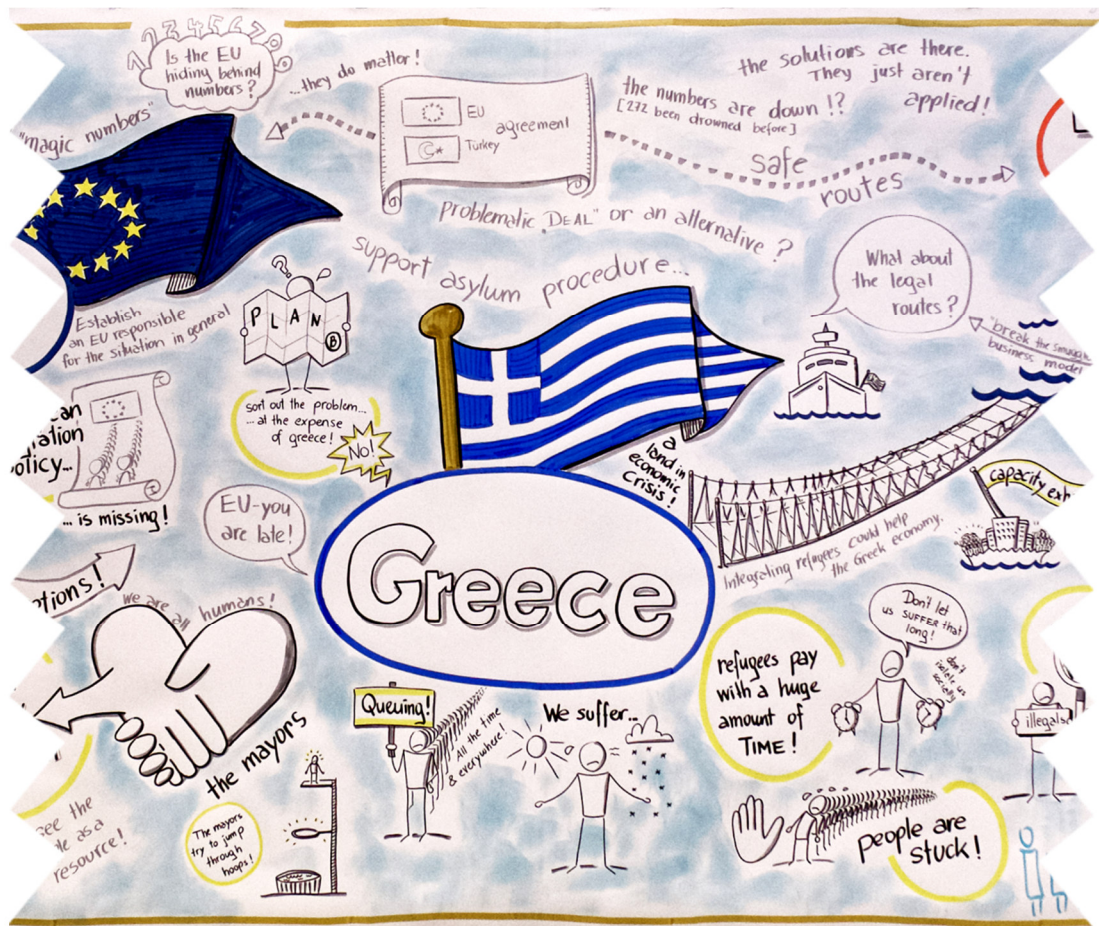 1234567
0
Is the EU
hiding behind
numbers?
...they do matter!
"magic numbers"
EU
agreement
Turkey
the solutions are there.
They just aren't
applied!
the numbers are down !?
[272 been drowned before]
safe
routes
problematic „DEAL" or an alternative ?
support asylum procedure...
What about
the legal
routes?
"break the smuggle
business model
Establish
an EU responsible
for the situation in general
PLAN
B
sort out the problem...
...at the expense
of greece!
No!
olicy...
... is missing!
EU-you
are late!
a
land in
economic
crisis!
capacity exh
Integrating refugees could help
the Greek economy.
Greece
otions!
we are all humans!
the mayors
The mayors
try to jump
through
hoops!
ee the
te as a
resource!
Queuing!
All the time
& everywhere!
We suffer...
refugees pay
with a huge
amount of
TIME!
Don't let
us SUFFER that
long!
don't
isolate us
socially!
illegals
people are
stuck!